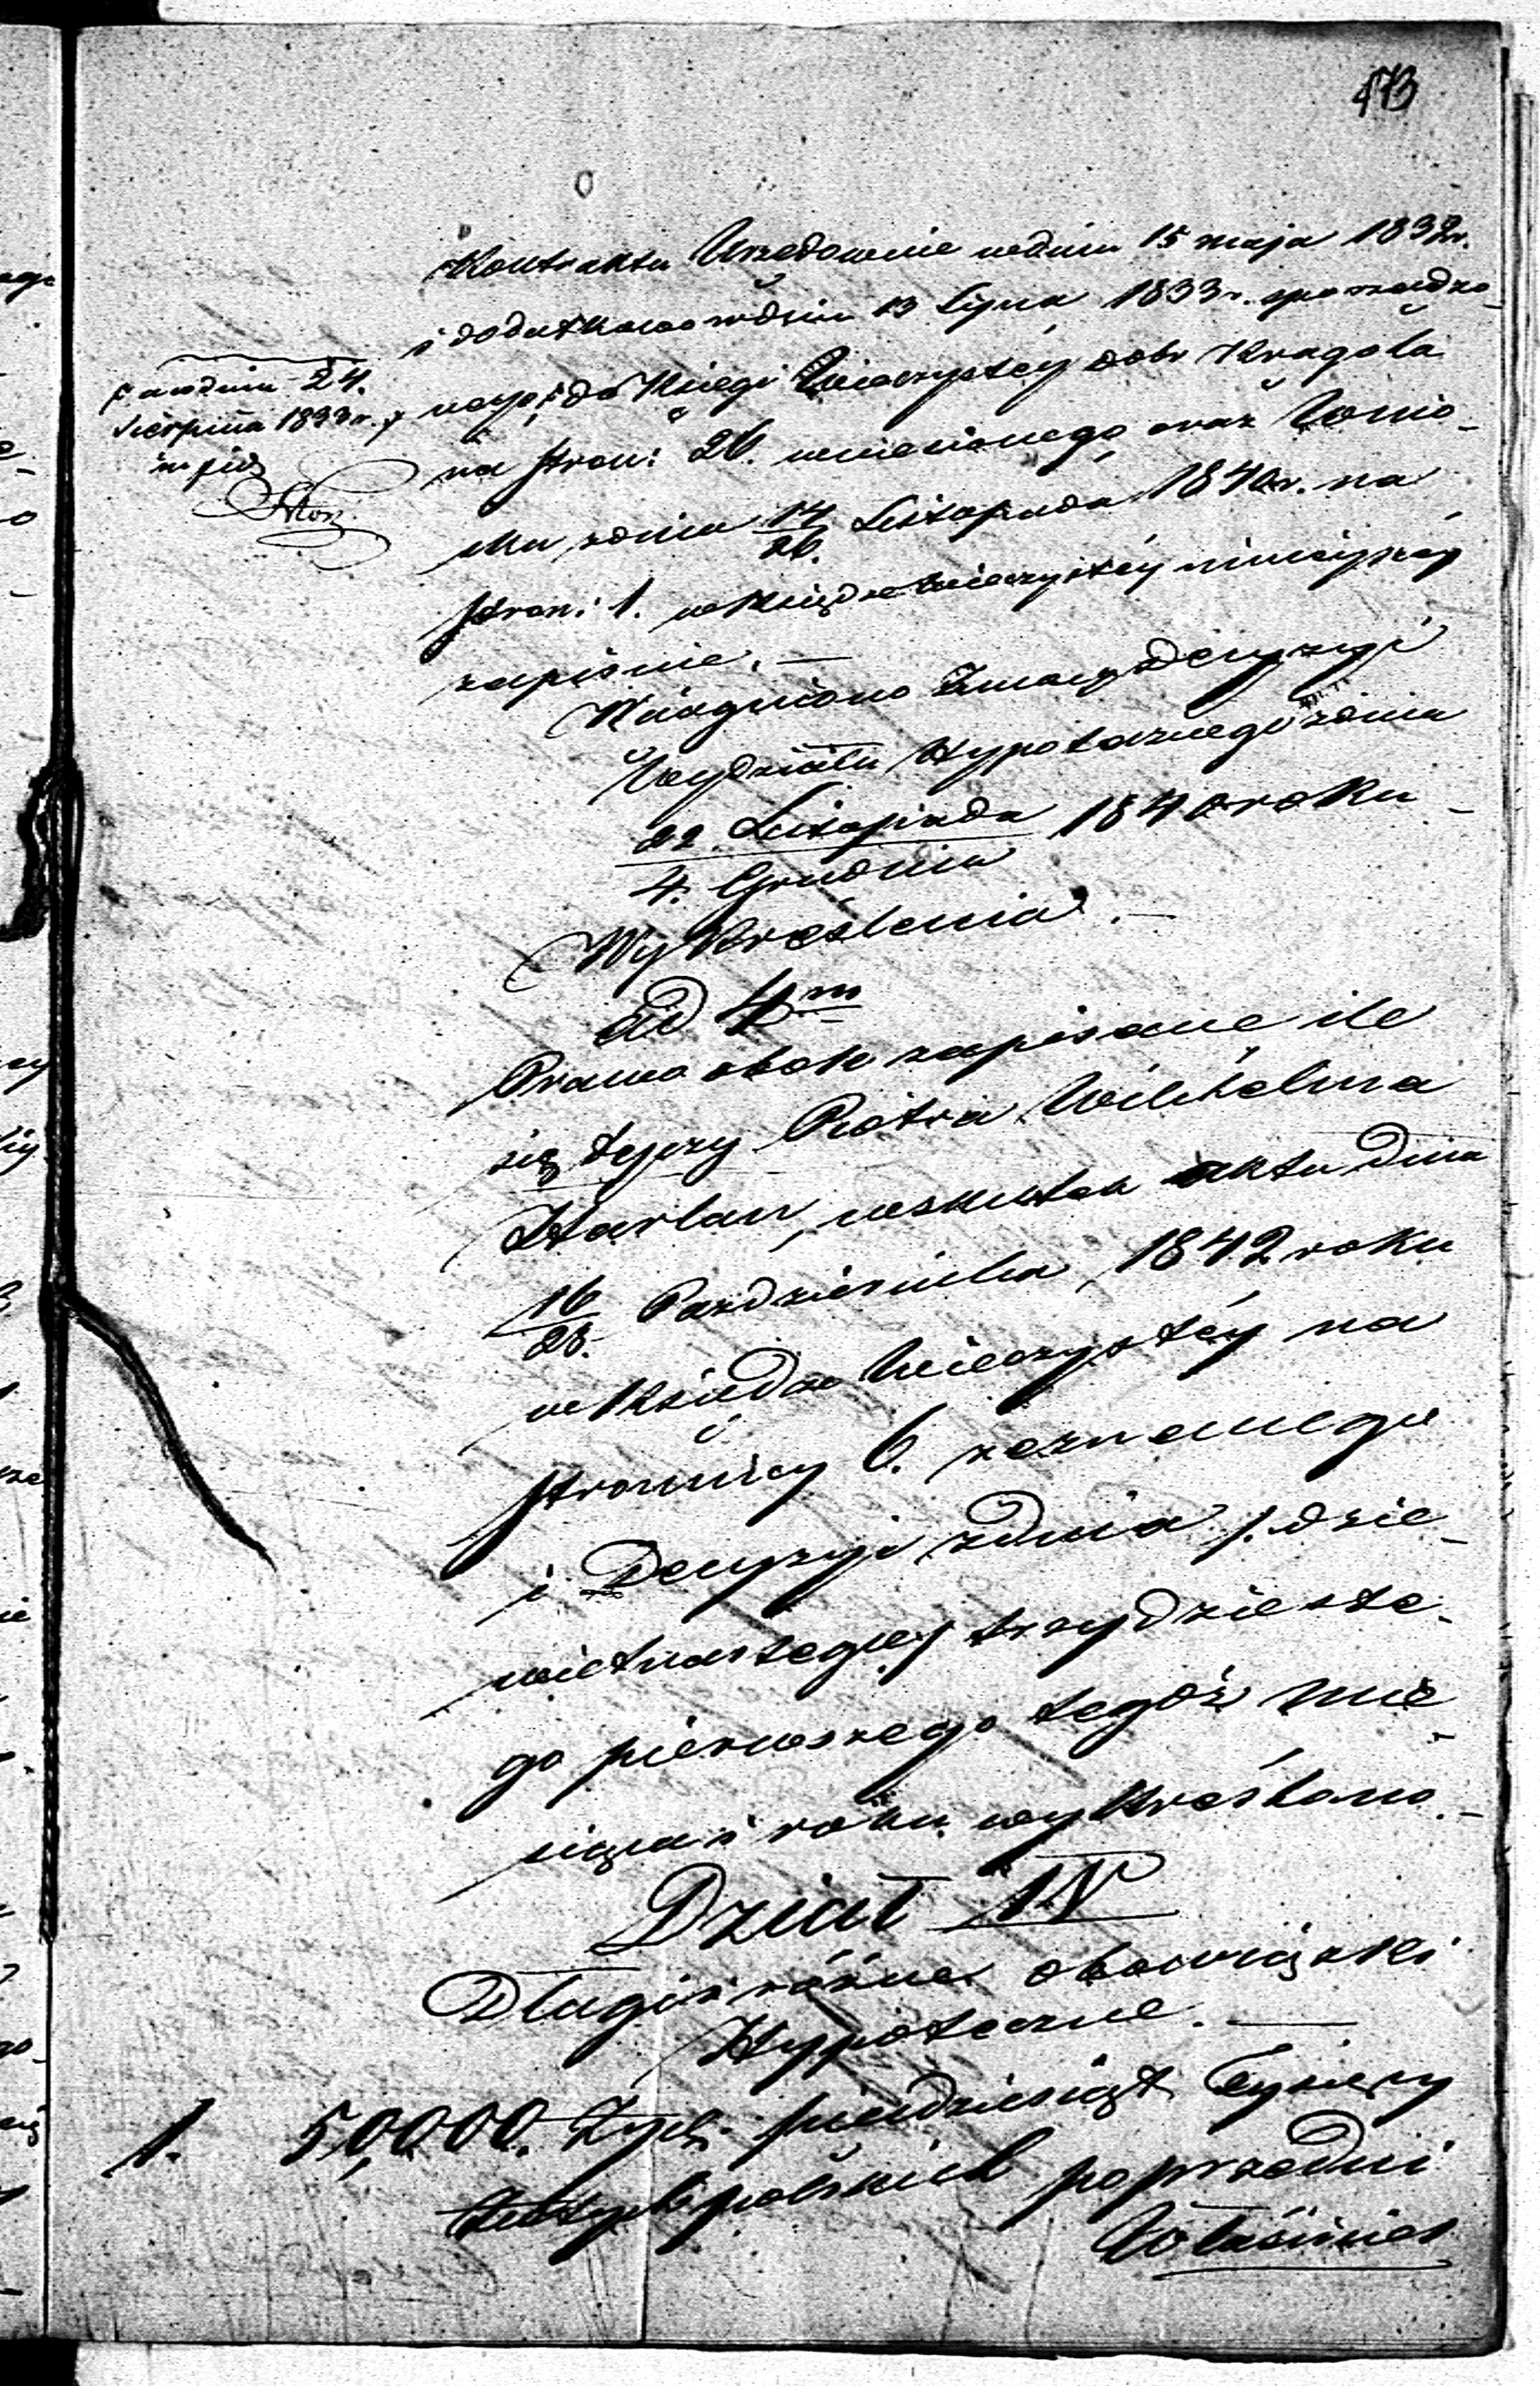 173
Kontraktu Urzedownie wdniu 15 maja 1832r.
i dodatkowo wdniu 13 Lipca 1833r. sporządzo-
nego, i do Księgi Wieczystéy dobr Kragola
na stron: 26. wniesionego, oraz Wnio-
sku zdnia 14/26. Listopada 1840r. na
stron: 1. w Księdze Wieczystéy ninieyszéy
zapisnie. —
Wciągniono zmocy decyzyi
Wydziału Hypotecznego zdnia
22. Listopada / 4. Grudnia 1840 roku —
Wykreślenia. —
ad 4m
Prawo obok zapisane ile
się tyczy Piotra Wilhelma
Harlan, wskutek aktu dnia
16/28. Pazdziernika 1842 roku
w Księdze Wieczystéy na
stronnicy 6. zeznanego
i Decyzyi zdnia /: dzie-
wietnastego / trzydzieste-
go pierwszego tegoż mie-
siąca i roku wykreślono. —
Dział IV
Długi i różne obowiązki
Hypoteczne. —
1. 50,000. Złpl. piędziesiąt Tysięcy
Złotych polskich poprzedni
Właściciel
/: wdniu 24.
Sierpnia 1833r.